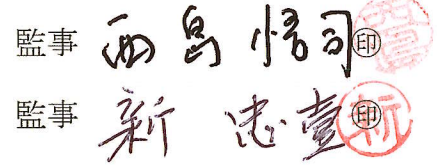 監事 西島 悟司 ㊞
監事 新 忠壹 ㊞